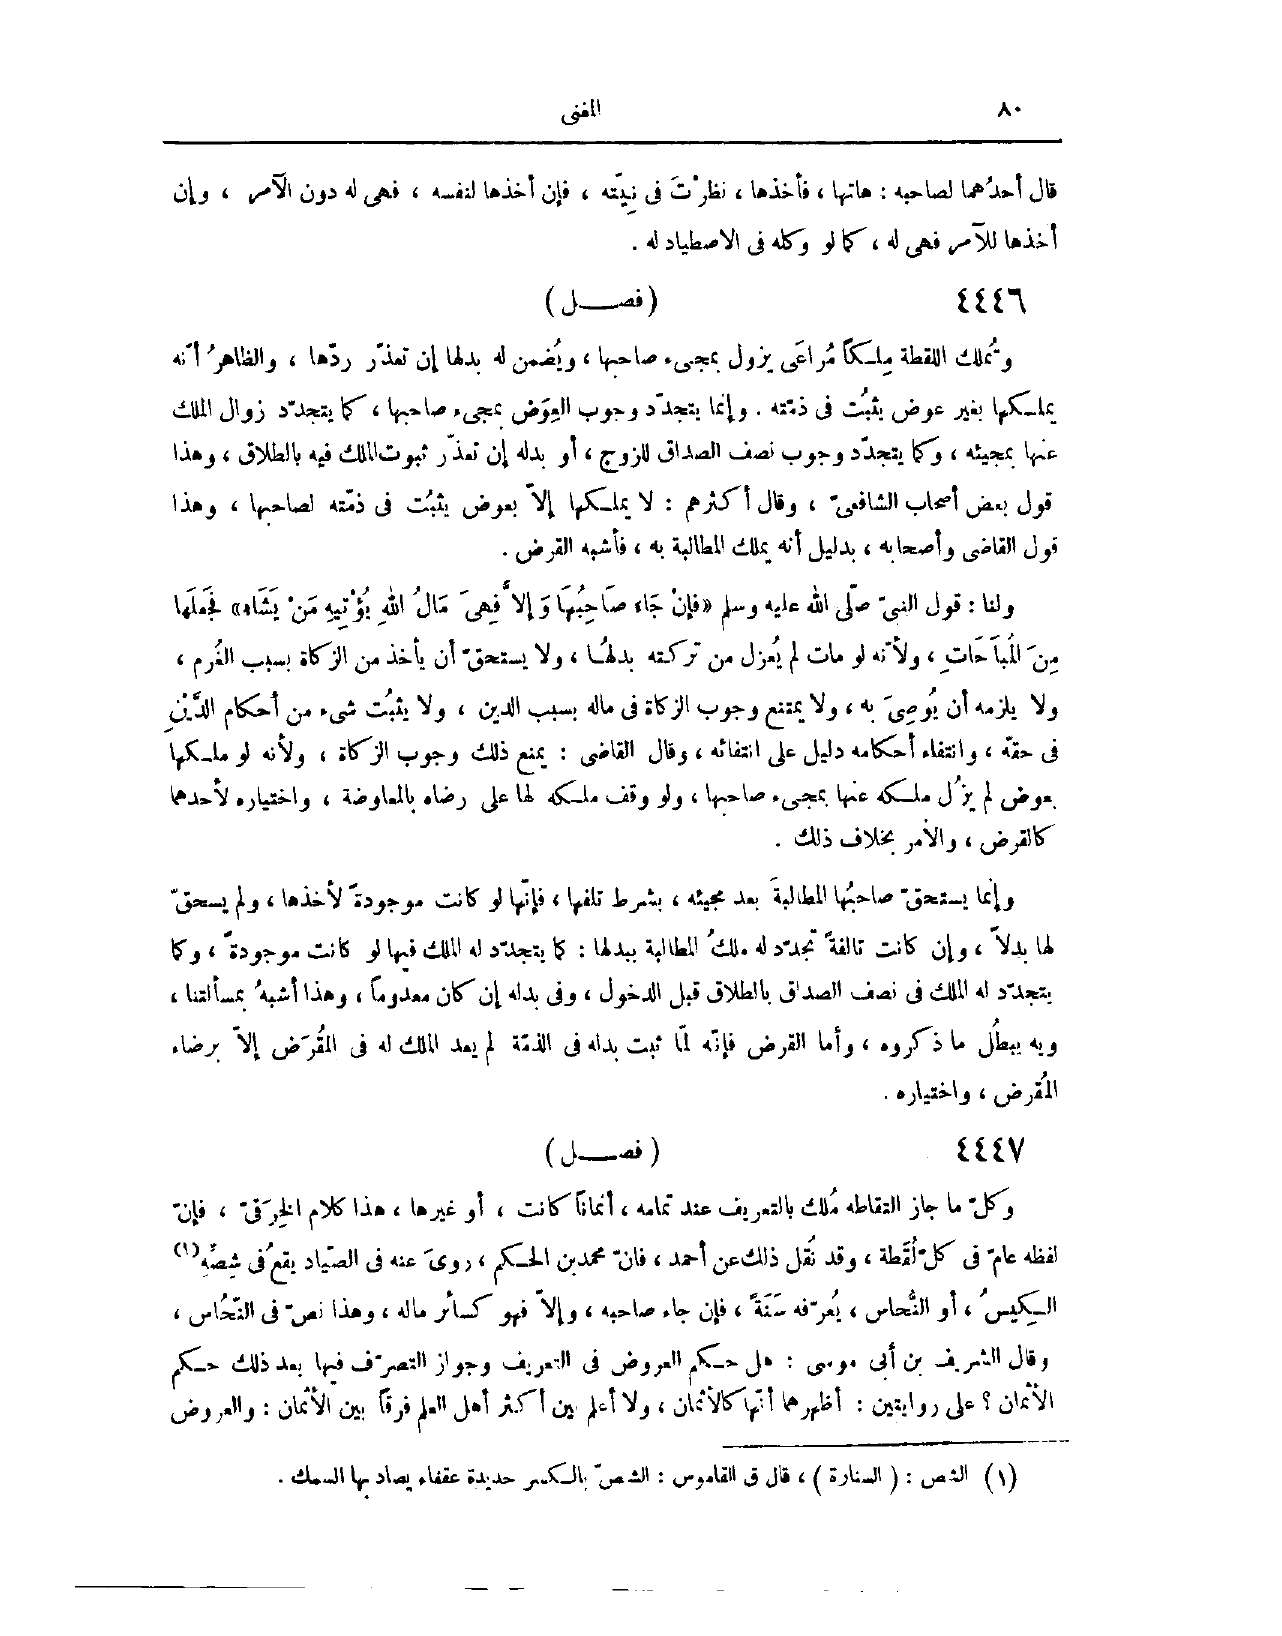 ٨٠
المغنى
قال أحدُهما لصاحبه : هاتها ، فأخذها ، نظرْتَ فى نِيّته ، فإن أخذها لنفسه ، فهى له دون الآمر ، وإن
أخذها للآمر فهى له ، كما لو وكله فى الاصطياد له .
٤٤٤٦ ( فصــل )
وتُملك اللقطة مِلـكاً مُراعَى يزول بمجىء صاحبها ، ويُضمن له بدلها إن تعذّر ردّها ، والظاهرُ أنّه
يملـكها بغير عوض يثبُت فى ذمّته . وإنما يتجدّد وجوب العِوَض بمجىء صاحبها ، كما يتجدّد زوال الملك
عنها بمجيئه ، وكما يتجدّد وجوب نصف الصداق للزوج ، أو بدله إن تعذّر ثبوت الملك فيه بالطلاق ، وهذا
قول بعض أصحاب الشافعىّ ، وقال أكثرهم : لا يملـكها إلاّ بعوض يثبُت فى ذمّته لصاحبها ، وهذا
قول القاضى وأصحابه ، بدليل أنه يملك المطالبة به ، فأشبه القرض .
ولنا : قول النبىّ صلّى الله عليه وسلم «فإنْ جَاء صَاحِبُهَا وَإلاَّ فَهِىَ مَالُ اللهِ يُؤْتِيهِ مَنْ يَشَاء» فجَعلَها
مِنَ المُبَاحَاتِ ، ولأنّه لو مات لم يُعزل من تركته بدلهُا ، ولا يستحقّ أن يأخذ من الزكاة بسبب الغُرم ،
ولا يلزمه أن يُوصِىَ به ، ولا يمتنع وجوب الزكاة فى ماله بسبب الدين ، ولا يثبُت شىء من أحكام الدَّيْنِ
فى حقّه ، وانتفاء أحكامه دليل على انتفائه ، وقال القاضى : يمنع ذلك وجوب الزكاة ، ولأنه لو ملـكها
بعوض لم يزُل ملـكه عنها بمجىء صاحبها ، ولو وقف ملـكه لها على رضاه بالمعاوضة ، واختياره لأحدهما
كالقرض ، والأمر بخلاف ذلك .
وإنما يستحقّ صاحبُها المطالبةَ بعد مجيئه ، بشرط تلفها ، فإنّها لو كانت موجودةً لأخذها ، ولم يسحقّ
لها بدلاً ، وإن كانت تالفةً تجدّد له ملكُ المطالبة ببدلها : كما يتجدّد له الملك فيها لو كانت موجودةً ، وكما
يتجدّد له الملك فى نصف الصداق بالطلاق قبل الدخول ، وفى بدله إن كان معدوماً ، وهذا أشبهُ بمسألتنا ،
وبه يبطُل ما ذكروه ، وأما القرض فإنّه لمّا ثبت بدله فى الذمّة لم يعد الملك له فى المُقرَض إلاّ برضاء
المُقرض ، واختياره .
٤٤٤٧ ( فصــل )
وكلّ ما جاز التقاطه مُلك بالتعريف عند تمامه ، أثماناً كانت ، أو غيرها ، هذا كلام الخِرَقىّ ، فإنّ
لفظه عامّ فى كلّ لُقَطة ، وقد نُقل ذلك عن أحمد ، فانّ محمد بن الحـكم ، روىَ عنه فى الصّياد يقعُ فى شِصِّهِ (١)
الـكيسُ ، أو النُّحاس ، يُعرّفه سَنَةً ، فإن جاء صاحبه ، وإلاّ فهو كسائر ماله ، وهذا نصّ فى النُّحَاس ،
وقال الشريف بن أبى موسى : هل حـكم العروض فى التعريف وجواز التصرّف فيها بعد ذلك حـكم
الأثمان ؟ على روايتين : أظهرهما أنّها كالأثمان ، ولا أعلم بين أكثر أهل العلم فرقاً بين الأثمان : والعروض
(١) الشص : ( السنارة ) ، قال ق القاموس : الشصّ بالـكسر حديدة عقفاء يصاد بها السمك .